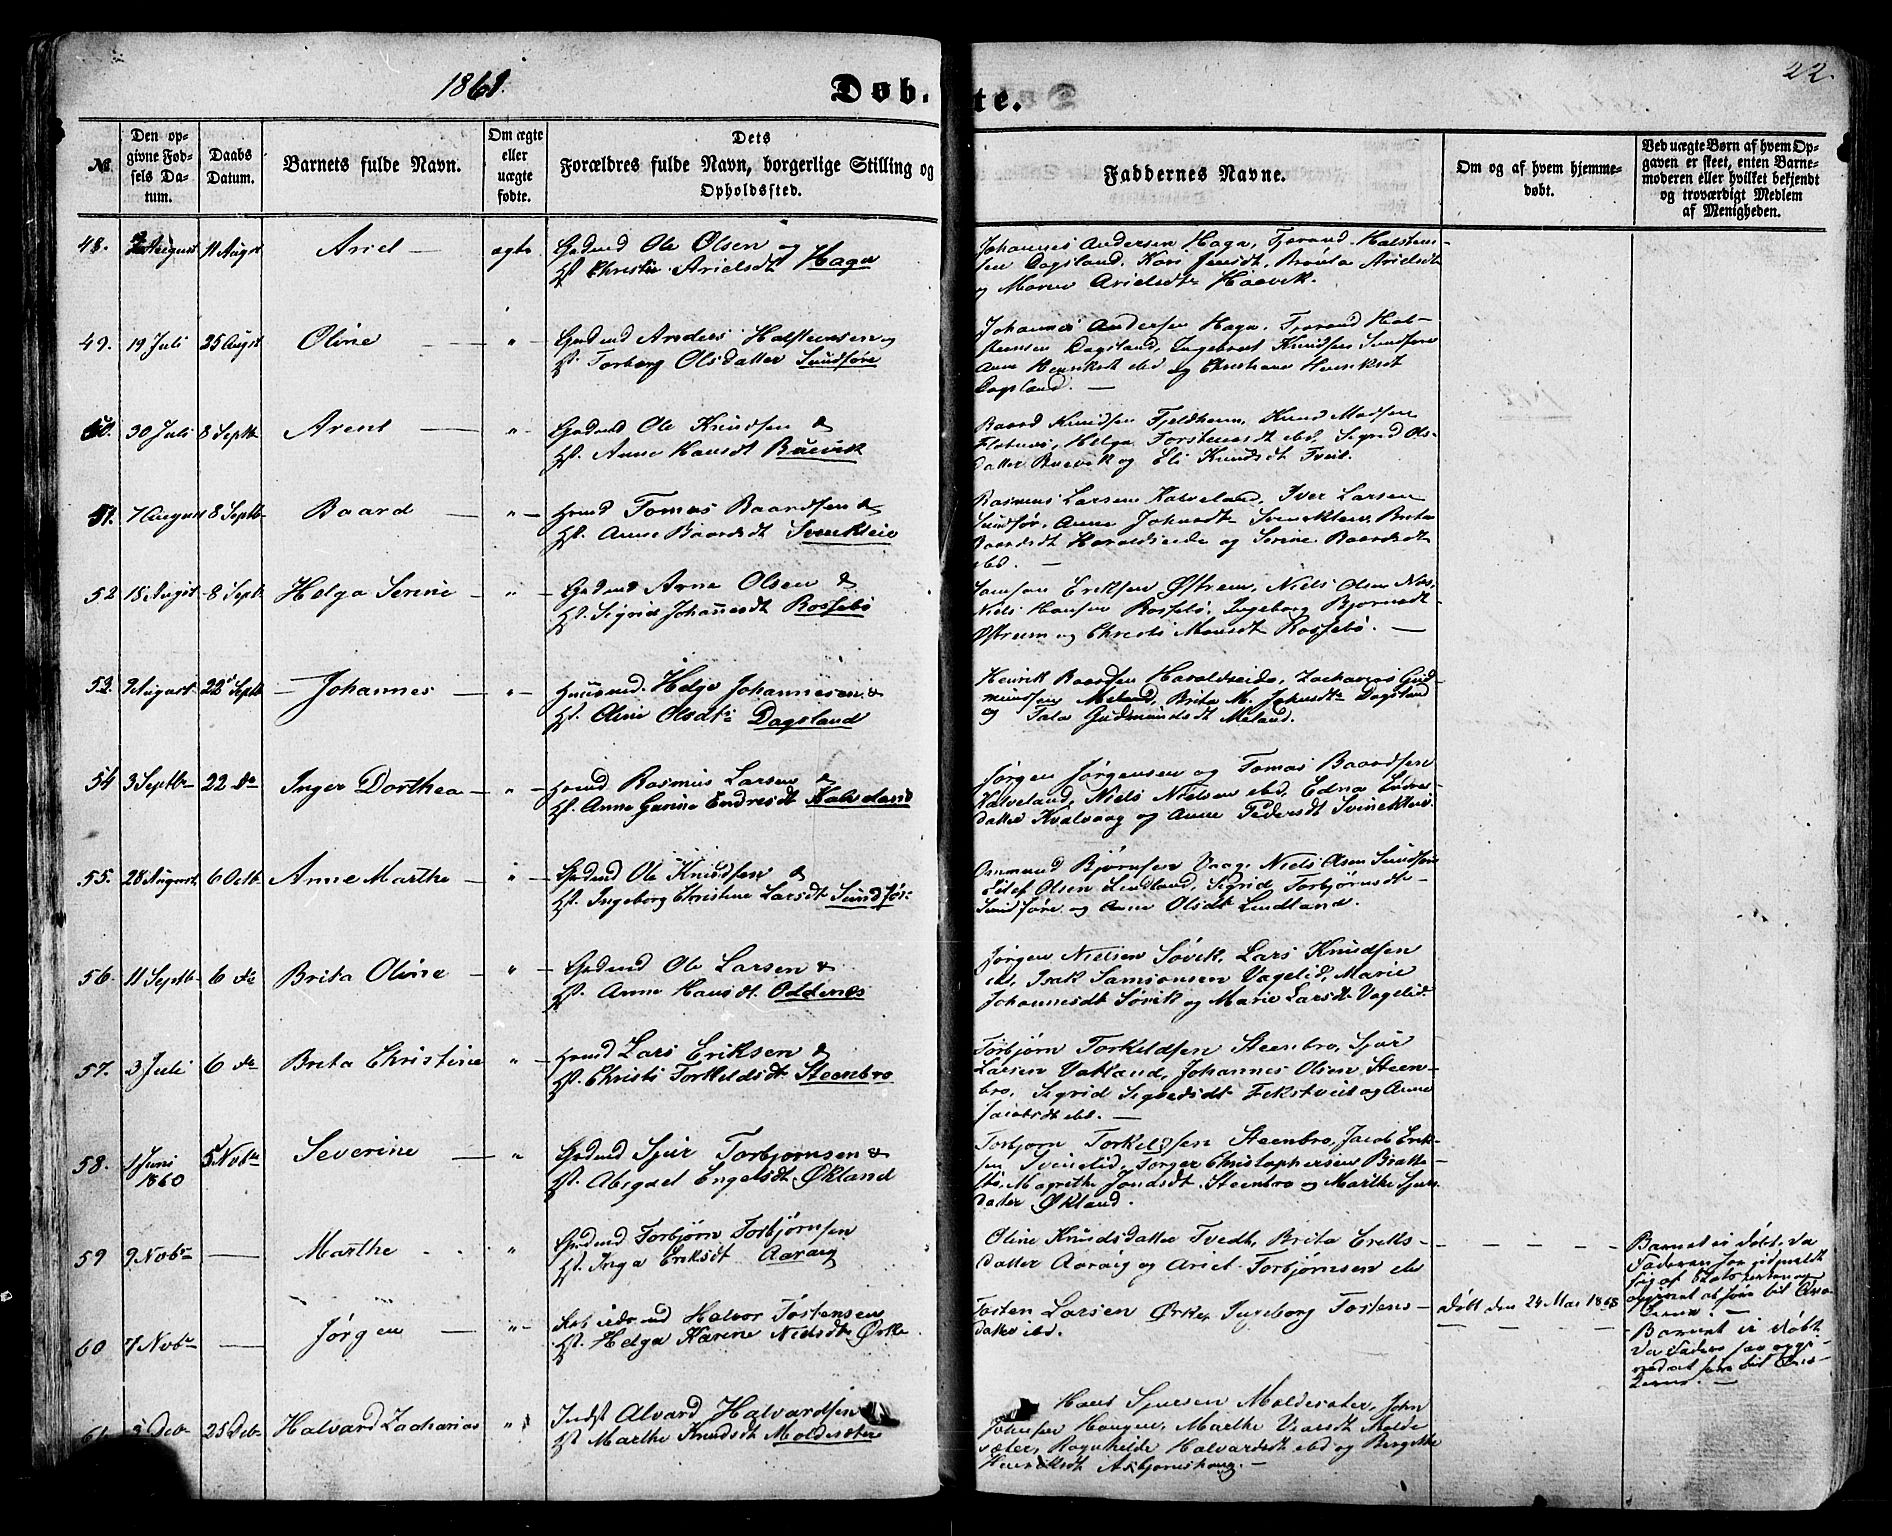 1861.
Døb.
te.
22.
№
Den op-
givne Fød-
sels Da-
tum.
Daabs
Datum.
Barnets fulde Navn.
Om ægte
eller
uægte
fødte.
Dets
Forældres fulde Navn, borgerlige Stilling og
Opholdssted.
Faddernes Navne.
Om og af hvem hjemme-
døbt.
Ved uægte Børn af hvem Op-
gaven er skeet, enten Barne-
moderen eller hvilket bekjendt
og troværdigt Medlem
af Menigheden.
48. August 11 August Ariel — ægte Gaardmd Ole Olsen og
H. Christie Arielsdt Haga
Johannes Andersen Haga, Tjerand Halsten-
sen Dagsland, Kari Jensdt, Brita Arielsdt
og Maren Arielsdt Haavik.
49. 19 Juli 25 August Oline — " — Gaardmd Anders Halstensen og
H. Torborg Olsdatter Sundføre
Johannes Andersen Haga, Tjerand Hal-
steensen Dagsland, Ingebret Knudsen Sundføre
Anne Henriksdt ibd og Christiane Henriksdt
Dagsland. —
50. 30 Juli 8 Septb Arent — " — Gaardmd Ole Knudsen &
H. Anne Hansdt Buevik
Baard Knudsen Fjeldheim, Knud Madsen
Helga Torstensdt ibd, Sigrid Ols-
datter Buevik og Eli Knudsdt Tveit.
51. 7 August 8 Septb Baard — " — Huusmd Tomas Baardsen &
H. Anne Baardsdt Svinekleie
Rasmus Larsen Kalveland, Iver Larsen
Sundfør, Anne Johnsdt Svinekleie, Brita
Baardsdt Haraldseide og Serine Baardsdt
ibd. —
52 18 August 8 Septb Helga Serine — " — Gaardmd Arne Olsen &
H. Sigrid Johannesdt Rossebø
Samson Eriksen Østrem, Niels Olsen Næs,
Niels Hansen Rossebø, Ingeborg Bjørnsdt
Østrem og Christi Monsdt Rossebø. —
53. August 22 Septb — Johannes — " — Huusmd. Helge Johannesen &
H. Oline Olsdt Dagsland
Henrik Baardsen Haraldseide, Zacharias Gud-
mundsen Meland, Brita M. Johnsdt Dagsland
og Tala Gudmundsdt Meland.
54 3 Septbr 22 do Inger Dorthea — " — Huusmd Rasmus Larsen &
H. Anne Gurine Endresdt Kalveland
Jørgen Jørgensen og Tomas Baardsen
Kalveland, Niels Nielsen ibd, Edna Endres-
datter Kvalvaag og Anne Pedersdt Svinekleie
55. 28 August 6 Octb. Anne Marthe — " — Gaardmd Ole Knudsen &
H. Ingeborg Christine Larsdt Sundfør.
Ommund Bjørnsen Vaage, Niels Olsen Sundføre
Olsen Lindland, Sigrid Torbjørnsdt
Sundføre og Anne Olsdt Lindland.
56. 11 Septb 6 do Brita Oline — " — Gaardmd Ole Larsen &
H. Anne Hansdt Oddenes
Jørgen Nielsen Søvik, Lars Knudsen
ibd, Isak Samsonsen Vagelid, Marie
Johannesdt Søvik og Marie Larsdt Vagelid.
57. 3 Juli 6 do Brita Christine " — Huusmd Lars Eriksen &
H. Christi Torkildsdt Steenbro
Torbjørn Torkildsen Steenbro, Sjur
Larsen Vatland, Johannes Olsen Steen-
bro, Sigrid Sigvesdt Tekstveit og Anne
Jacobsdt ibd. —
58. 1 Juni 5 Nobr Severine — " Gaardmd Sjur Torbjørnsen &
1860 H. Abigael Engelsdt Økland
Torbjørn Torkildsen Steenbro, Jacob Erik-
sen Svinelid, Torger Christophersen Bratte-
stø, Magrithe Jonasdt. Steenbro og Marthe Sjurs-
datter Økland.
59 9 Nobr — Marthe " Gaardmd Torbjørn Torbjørnsen
H. Inga Eriksdt Aaraig
Oline Knudsdatter Tvedt, Brita Eriks-
datter Aaraig og Ariel Torbjørnsen ibd
Barnet ei døbt, da
Faderen har
sig af Statskirken og
opgivet at høre til
60 7 Nobr — Jørgen — " — Halvor Tostensen
H. Helga Karine Nielsdt Ørke
Tosten Larsen Ørke, Ingeborg Tostens-
datter ibd.
Døbt den 24 Mai 1868
Barnet ei døbt
da Faderen har opgi-
vet at høre til
61 3 Deb 25 Deb Halvard Zacharias " Indst Alvard Halvardsen
H. Marthe Knudsdt Moldesæter
Hans Sjursen Moldesæter, John
Johnsen Haugen, Marthe Molde-
sæter, Ragnhilde Halvardsdt ibd og Bergitte
Henriksdt Asbjørnshaug. —